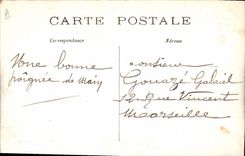 CARTE POSTALE
Correspondance
Adresse
Une bonne
poignée de Main
Monsieur
Gouazé Gabriel
12 Rue Vincent
Marseille